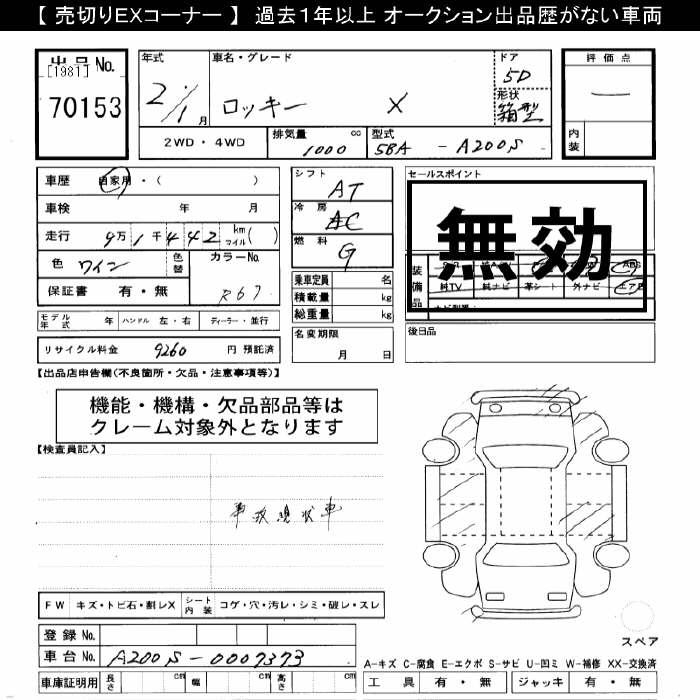 【 売切りEXコーナー 】 過去1年以上 オークション出品歴がない車両
出品 No.
[1981]
70153
年式
2/1 月
車名・グレード
ロッキー X
ドア
5D
形状
箱型
評価点
内装
2WD・4WD
排気量 cc
1000
型式
5BA - A200S
車歴 自家用・( )
車検 年 月
走行 9万1千442 km マイル( )
色 ワイン
色替
カラーNo.
R67
保証書 有・無
シフト AT
冷房 AC
燃料 G
乗車定員 名
積載量 kg
総重量 kg
セールスポイント
無効
装備品
純TV 純ナビ 革シート 外ナビ エアB
モデル年式 年 ハンドル 左・右 ディーラー・並行
リサイクル料金 9260 円 預託済
名変期限
月 日
後日品
【出品店申告欄(不良箇所・欠品・注意事項等)】
機能・機構・欠品部品等は
クレーム対象外となります
【検査員記入】
事故現状車
FW キズ・トビ石・割レX シート内装 コゲ・穴・汚レ・シミ・破レ・スレ
登録 No.
車台 No. A200S-0007373
車庫証明用 長さ cm 幅 cm 高さ cm
スペア
A-キズ C-腐食 E-エクボ S-サビ U-凹ミ W-補修 XX-交換済
工具 有・無 ジャッキ 有・無